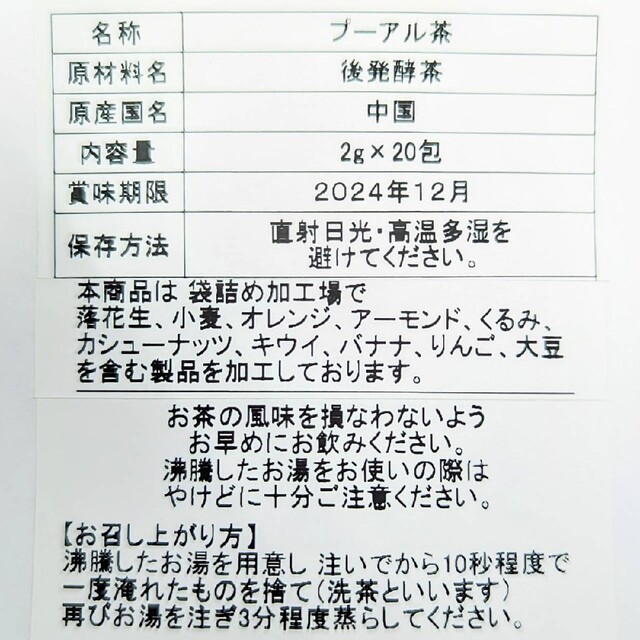 名称 プーアル茶
原材料名 後発酵茶
原産国名 中国
内容量 2g×20包
賞味期限 2024年12月
保存方法 直射日光・高温多湿を
避けてください。
本商品は 袋詰め加工場で
落花生、小麦、オレンジ、アーモンド、くるみ、
カシューナッツ、キウイ、バナナ、りんご、大豆
を含む製品を加工しております。
お茶の風味を損なわないよう
お早めにお飲みください。
沸騰したお湯をお使いの際は
やけどに十分ご注意ください。
【お召し上がり方】
沸騰したお湯を用意し 注いでから10秒程度で
一度淹れたものを捨て(洗茶といいます)
再びお湯を注ぎ3分程度蒸らしてください。